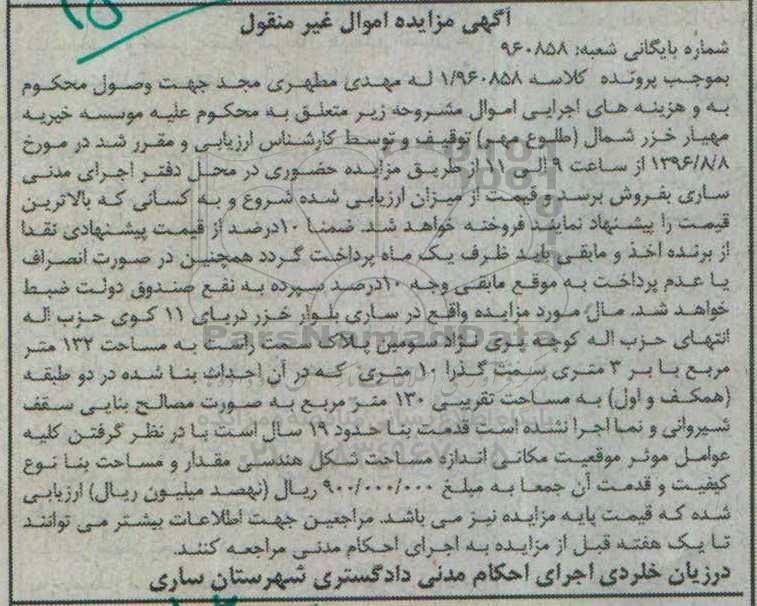 آگهی مزایده اموال غیر منقول
شماره بایگانی شعبه: ۹۶۰۸۵۸
بموجب پرونده کلاسه ۱/۹۶۰۸۵۸ له مهدی مطهری مجد جهت وصول محکوم
به و هزینه های اجرایی اموال مشروحه زیر متعلق به محکوم علیه موسسه خیریه
مهیار خزر شمال (طلوع مهر) توقیف و توسط کارشناس ارزیابی و مقرر شد در مورخ
۱۳۹۶/۸/۸ از ساعت ۹ الی ۱۱ از طریق مزایده حضوری در محل دفتر اجرای مدنی
ساری بفروش برسد و قیمت از میزان ارزیابی شده شروع و به کسانی که بالاترین
قیمت را پیشنهاد نمایند فروخته خواهد شد. ضمنا ۱۰درصد از قیمت پیشنهادی نقدا
از برنده اخذ و مابقی باید ظرف یک ماه پرداخت گردد همچنین در صورت انصراف
یا عدم پرداخت به موقع مابقی وجه ۱۰درصد سپرده به نفع صندوق دولت ضبط
خواهد شد. مال مورد مزایده واقع در ساری بلوار خزر دریای ۱۱ کوی حزب اله
انتهای حزب اله کوچه پری نژاد سومین پلاک سمت راست به مساحت ۱۳۲ متر
مربع با بر ۳ متری سمت گذرا ۱۰ متری که در آن احداث بنا شده در دو طبقه
(همکف و اول) به مساحت تقریبی ۱۳۰ متر مربع به صورت مصالح بنایی سقف
شیروانی و نما اجرا نشده است قدمت بنا حدود ۱۹ سال است با در نظر گرفتن کلیه
عوامل موثر موقعیت مکانی اندازه مساحت شکل هندسی مقدار و مساحت بنا نوع
کیفیت و قدمت آن جمعا به مبلغ ۹۰۰/۰۰۰/۰۰۰ ریال (نهصد میلیون ریال) ارزیابی
شده که قیمت پایه مزایده نیز می باشد. مراجعین جهت اطلاعات بیشتر می توانند
تا یک هفته قبل از مزایده به اجرای احکام مدنی مراجعه کنند.
درزیان خلردی اجرای احکام مدنی دادگستری شهرستان ساری
ParsNamadData